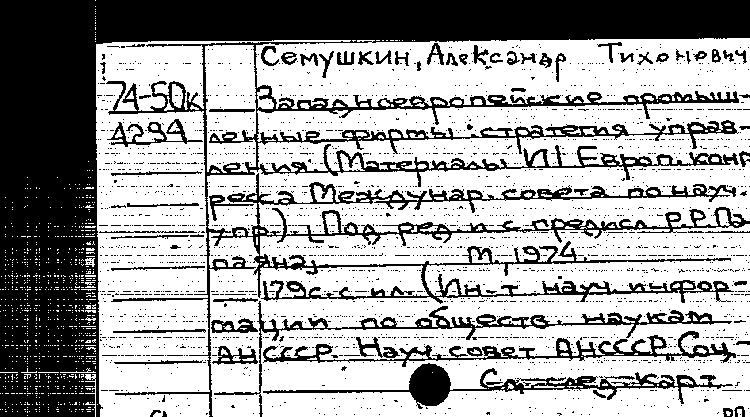 Семушкин, Александр Тихонович
74-50к Западноевропейские промыш-
4294 ленные фирмы: стратегия управ-
ления. (Материалы VII Европ. конг
ресса Междунар. совета по науч.
упр.). [Под ред и с предисл. Р.Р. Па
паяна]. М., 1974.
179с. с ил. (Ин-т науч. инфор-
мации по обществ. наукам
АНСССР. Науч. совет АНСССР. Соц.-
См. след. карт.